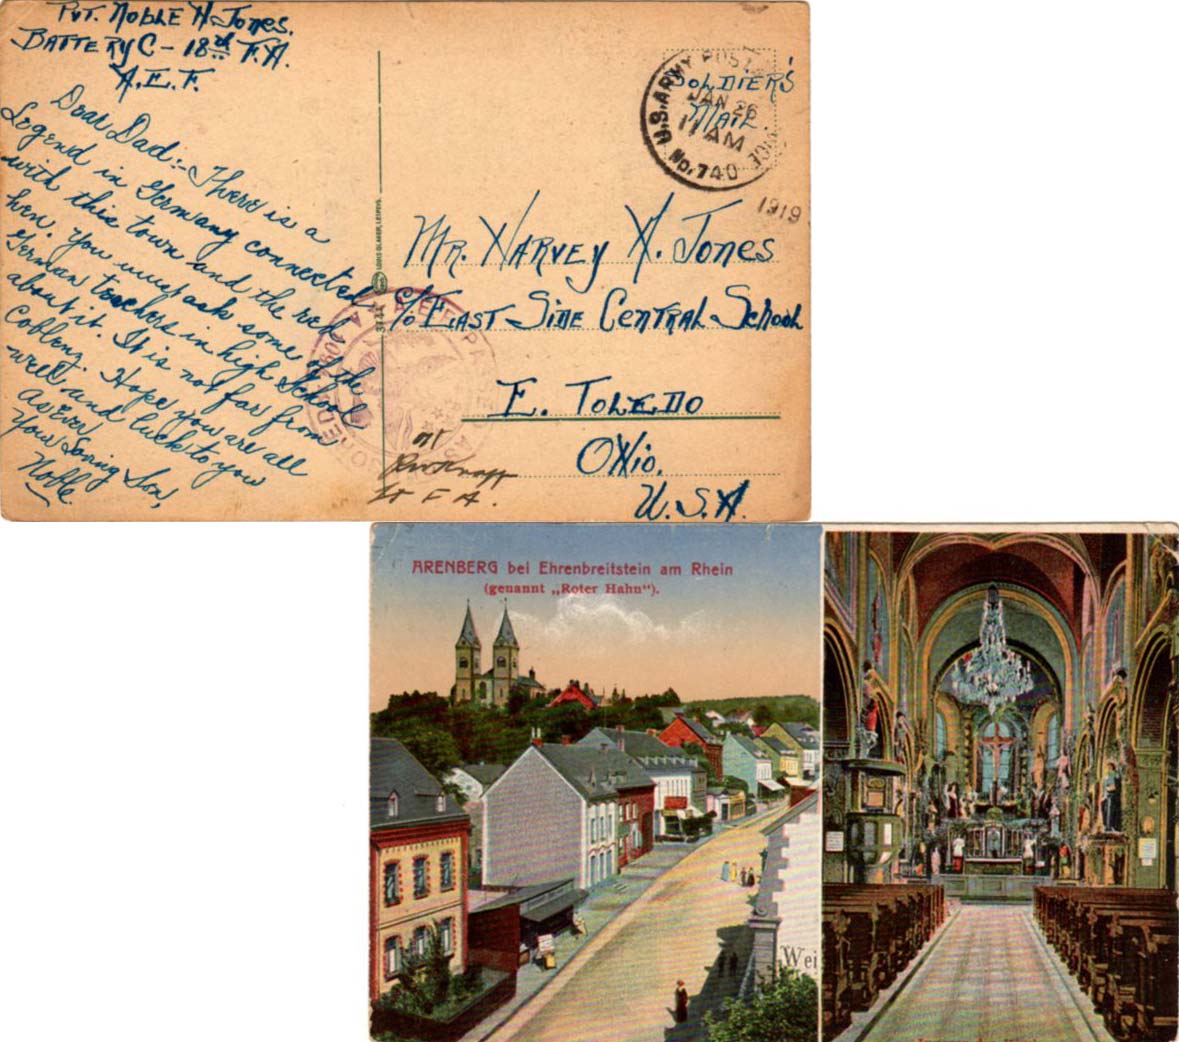 Pvt. Noble H. Jones.
Battery C - 18th F.A.
A.E.F.
Dear Dad:- There is a
Legend in Germany connected
with this town and the red
hen. You must ask some of the
German teachers in high School
about it. It is not far from
Coblenz. Hope you are all
well and luck to you
As Ever
Your Loving Son,
Noble.
LOUIS GLASER, LEIPZIG.
3744
U.S. ARMY POST
JAN 26
11 AM
No. 740
1919
SOLDIER'S
MAIL
Mr. Harvey H. Jones
c/o East Side Central School
E. Toledo
Ohio.
U.S.A.
A.E.F. PASSED AS
CENSORED
ARENBERG bei Ehrenbreitstein am Rhein
(genannt „Roter Hahn").
Wei